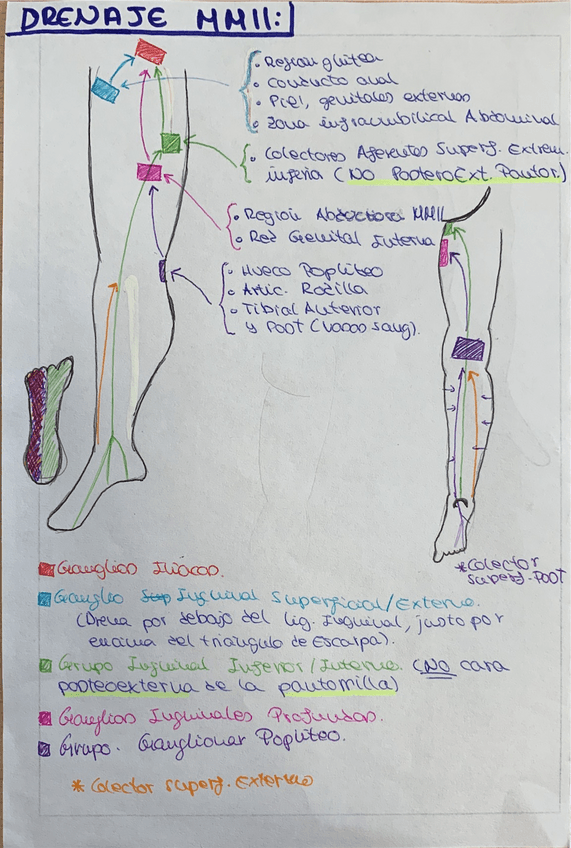 DRENAJE MMII:
• Region glútea
• Conducto anal
• Piel, genitales externos
• Zona infraumbilical Abdominal
• Colectores Aferentes Superf. Extrem.
inferia (NO PosteroExt. Pantor.)
• Region Abductora MMII
• Red Genital Interna
• Hueco Popliteo
• Artic. Rodilla
• Tibial Anterior
y Post (vasos sang).
*Colector
superf. Post
Ganglios Iliácos.
Ganglio Inguinal Superficial/Externo.
(Drena por debajo del lig. Inguinal, justo por
encima del triángulo de Escarpa).
Grupo Inguinal Inferior/Interno. (NO cara
posteoexterna de la pantorrilla)
Ganglios Inguinales Profundos.
Grupo. Ganglionar Popliteo.
* Colector superf. Externo